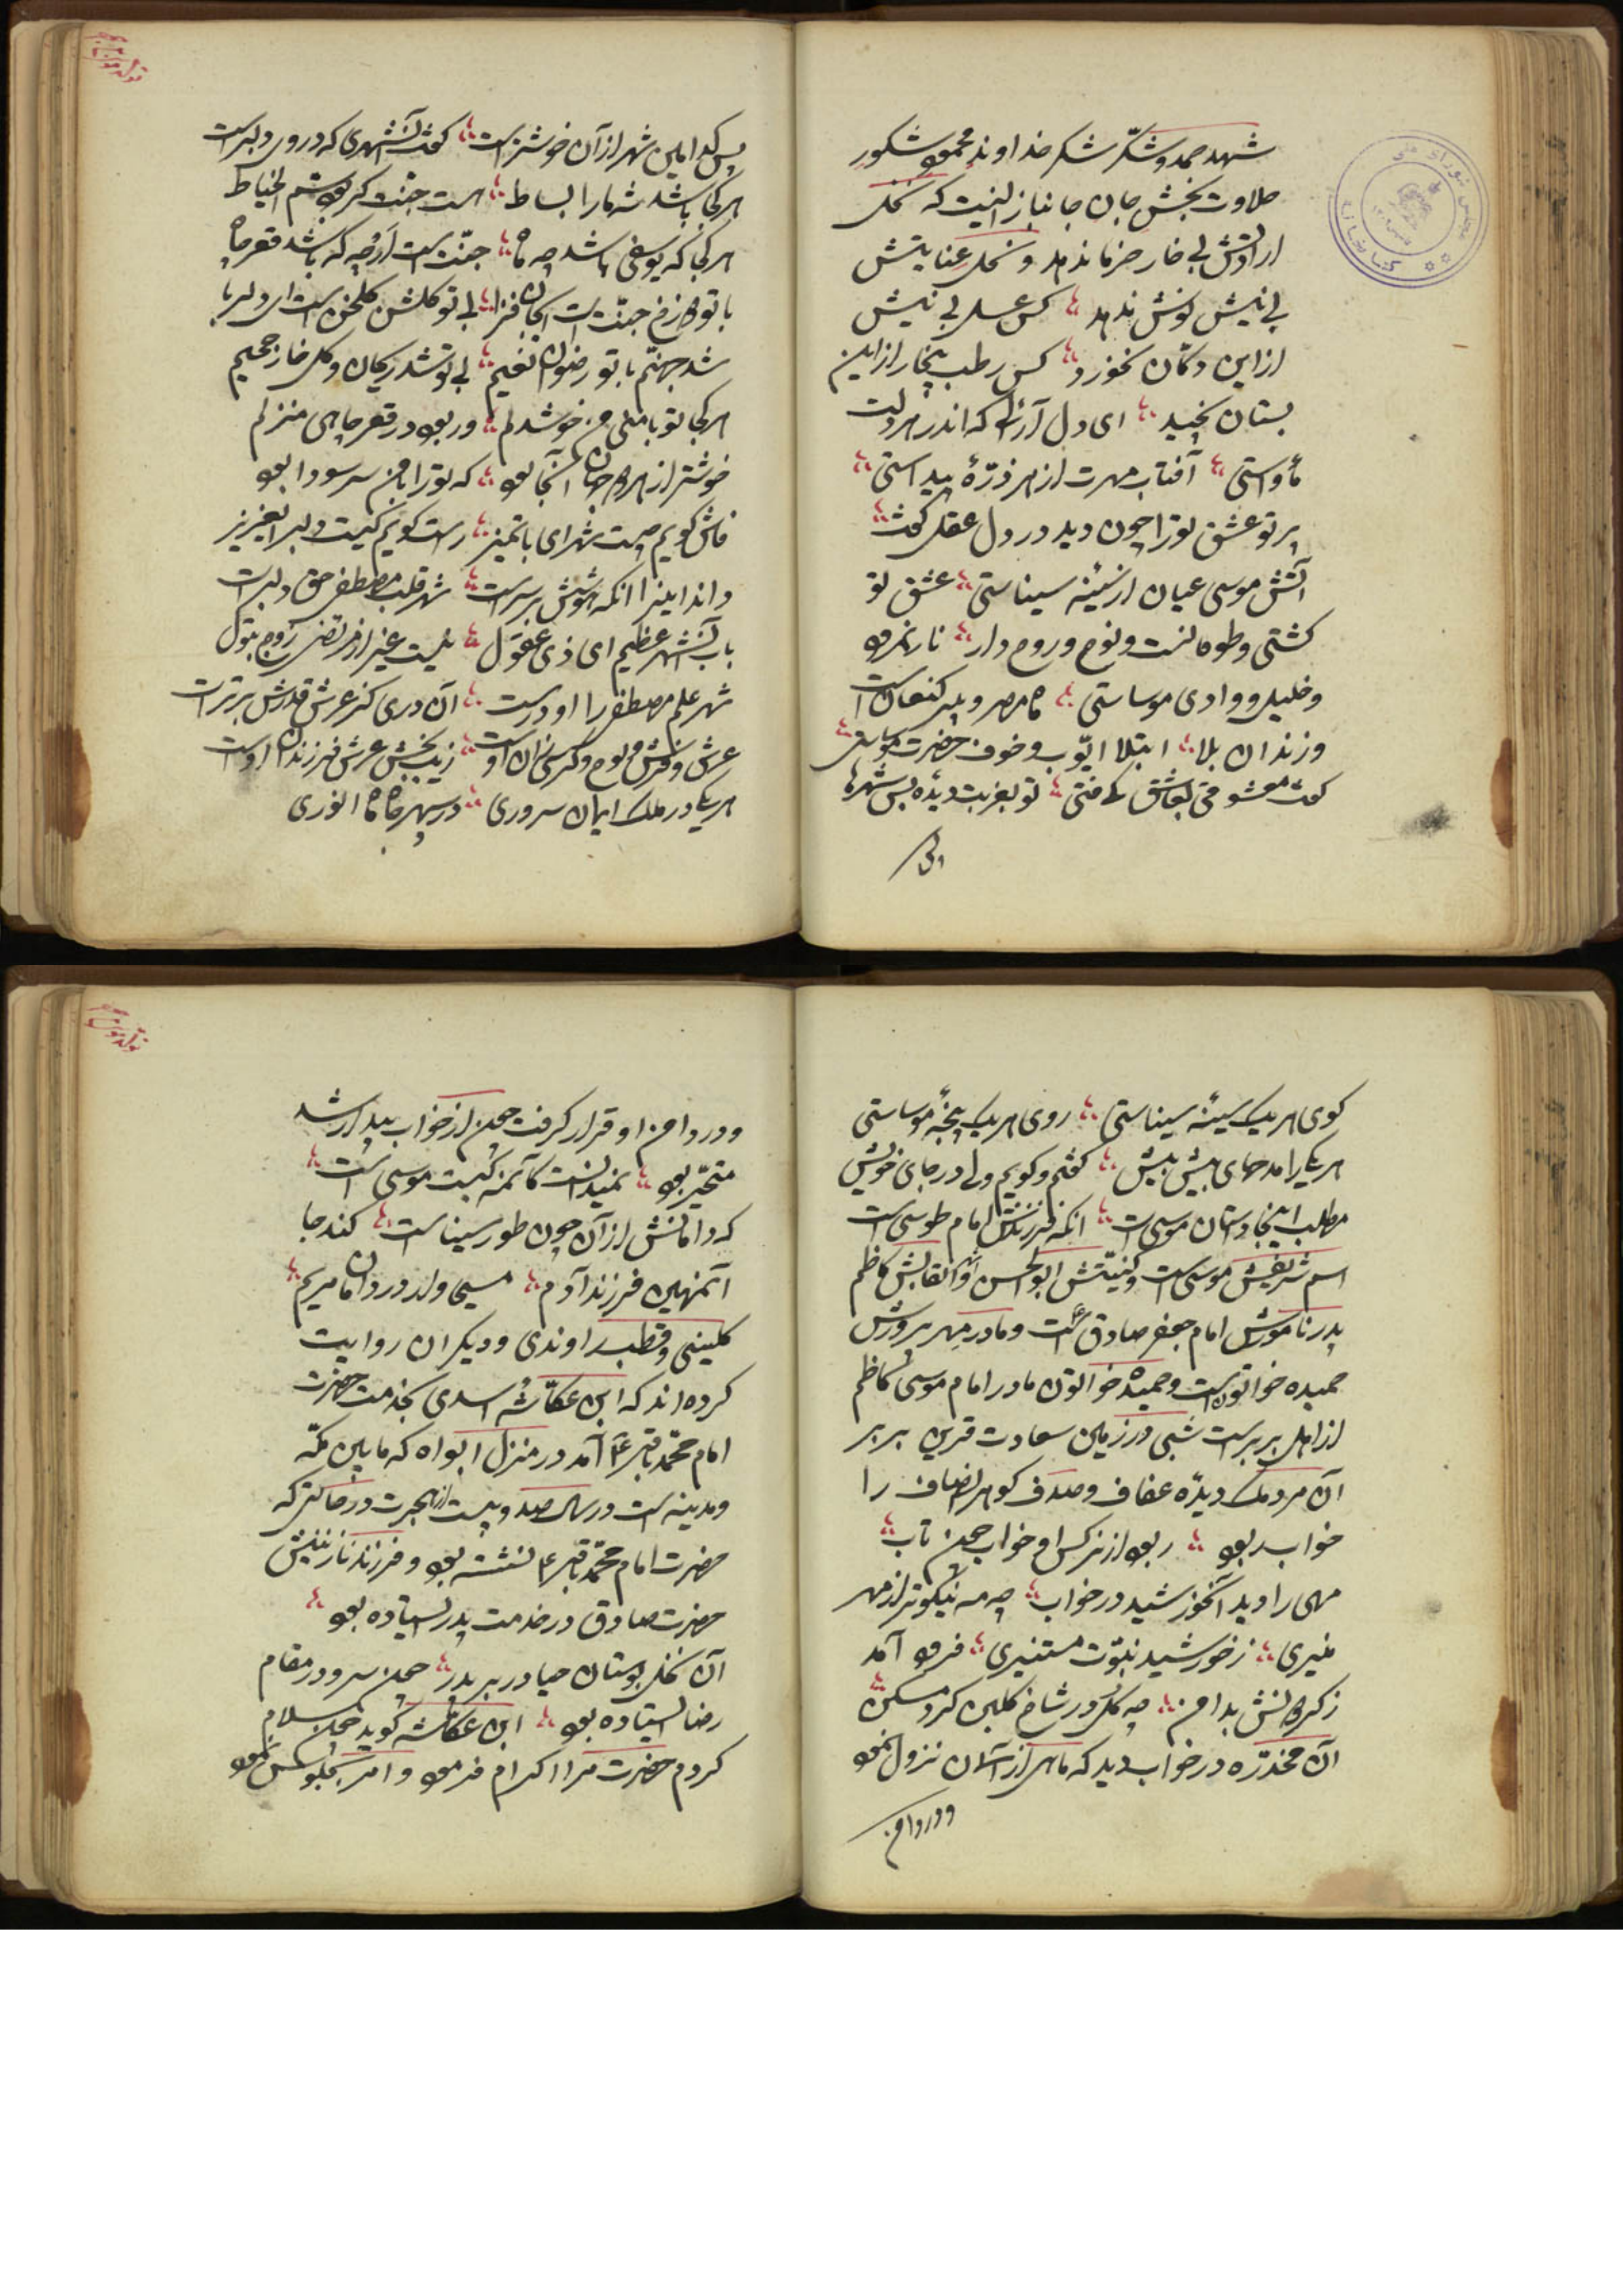 شهد حمد و شکّر شکر خداوند محمود شکور
حلاوت بخش جان جانباز انیست که نخل
ارادتش بی خار خرما ندهد و نحل عنایتش
بی نیش نوش ندهد کس عسل بی نیش
از این دکّان نخورد کس رطب بیخار از این
بستان نچید ای دل آرائی که اندر هر دلت
مأواستی آفتاب مهرت از هر ذرّۀ پیداستی
پرتو عشق تو را چون دید در دل عقل گفت
آتش موسی عیان از سینۀ سیناستی عشق تو
کشتی و طوفانست و نوح و روح دار نار نمرود
و خلیل و وادی موساستی ماه مصر و پیر کنعان است
و زندان بلا ابتلا ایّوب و خوف حضرت موساستی
گفت معشوقی بعاشق کای فتی تو بغربت دیدۀ بس شهرها
پس کدامین شهر از آن خوشتر است گفت آنشهری که در وی دلبر است
هر کجا باشد شه ما را بساط هست جنّت گر بود سمّ الخیاط
هر کجا که یوسفی باشد چه ماه جنّت است ار چه که باشد قعر چاه
با تو دوزخ جنّت است ای جان فزا بی تو گلشن گلخن است ای دلربا
شد جهنّم با تو رضوان نعیم بی تو شد ریحان و گل خار جحیم
هر کجا تو با منی من خوشدلم ور بود در قعر چاهی منزلم
خوشتر از هر دو جهان آنجا بود که تو را با من سر سودا بود
فاش گویم چیست شهر ای با تمیز راست گویم کیست دلبر ایعزیز
داند اینرا آنکه هوشش بر سر است شهر قلب مصطفی حق دلبر است
باب آنشهر عظیم ای ذی عقول نیست غیر از مرتضی زوج بتول
شهر علم مصطفی را او در است آن دری کز عرش قدرش برتر است
عرش و فرش و لوح و کرسی زان اوست زیب بخش عرش فرزندان اوست
هر یکی در ملک ایمان سروری در سپهر جاه ماه انوری
کوی هر یک سینۀ سیناستی روی هر یک پنجۀ موساستی
هر یکی را مدحهای بیش بیش گفتم و گویم ولی در جای خویش
مطلب اینجا داستان موسی است آنکه فرزندش امام طوسی است
اسم شریفش موسی است و کنیتش ابو الحسن و اشهر القابش کاظم
پدر نامورش امام جعفر صادق است و مادر مهر پرورش
حمیده خواتون است و حمیده خواتون مادر امام موسی کاظم
از اهل بربر است شبی در زمین سعادت قرین بربر
آن مردمک دیدۀ عفاف و صدف گوهر انصاف را
خواب ربود ربود از نرگس او خواب چون تاب
مهی را دید آنخورشید در خواب چه مه نیکوتر از مهر
منیری ز خورشید نبوّت مستنیری فرود آمد
ز گردونش بدامن چه گل در شاخ گلبن کرد مسکن
آن مخدّره در خواب دید که ماهی از آسمان نزول نمود
و در دامن
و در دامن او قرار گرفت چون از خواب بیدار شد
متحیّر بود نمیدانست کآنمه کیست موسی است
که دامانش از آن چون طور سینا است کند جا
آنمهین فرزند آدم مسیحی ولد در دامان مریم
کلینی و قطب راوندی و دیگران روایت
کرده اند که ابن عکّاشه اسدی بخدمت حضرت
امام محمّد باقر ع آمد در منزل ابواه که مابین مکّه
و مدینه است در سال صد و بیست از هجرت در حالتی که
حضرت امام محمّد باقر ع نشسته بود و فرزند نازنینش
حضرت صادق در خدمت پدر ایستاده بود
آن نخل بوستان حیا در بر پدر چون سرو در مقام
رضا ایستاده بود ابن عکّاشه گوید چون سلام
کردم حضرت مرا اکرام فرمود و امر بجلوس نمود